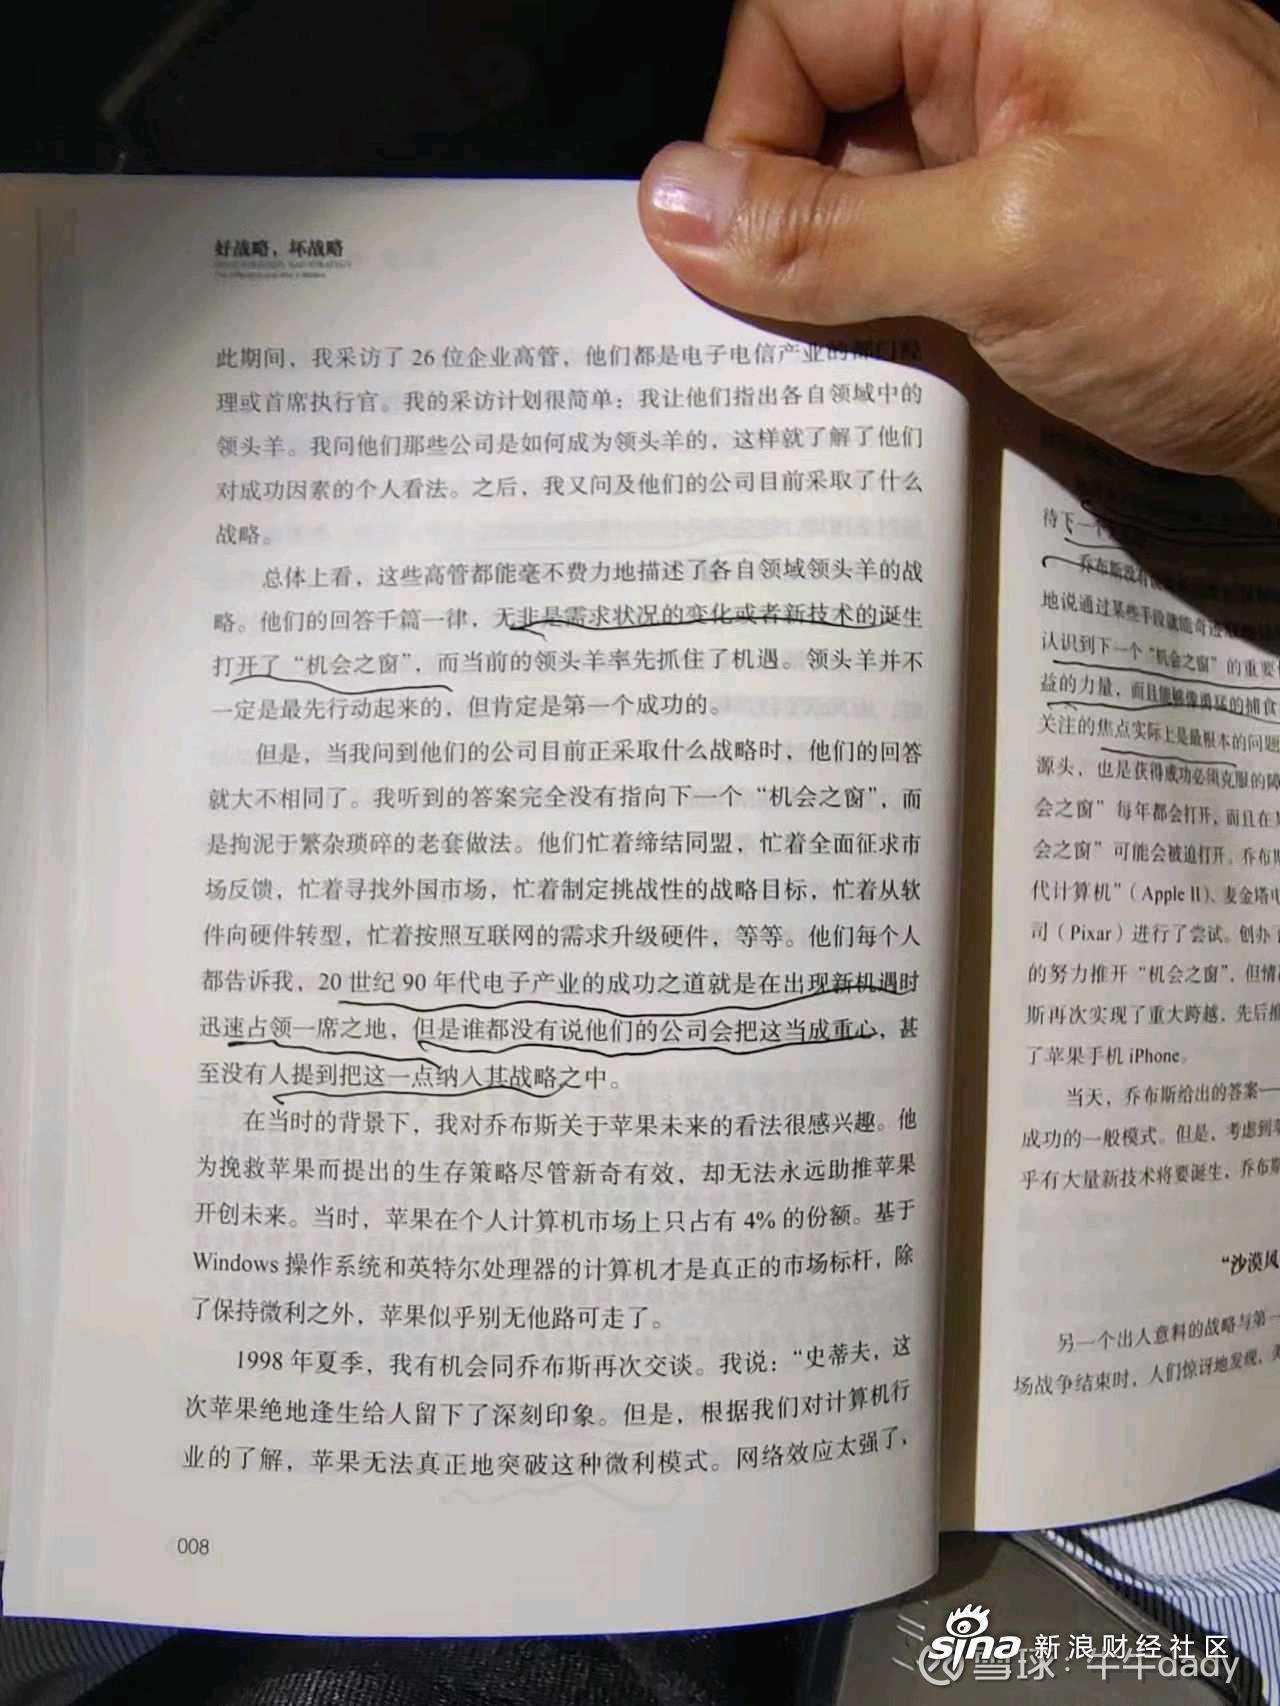 好战略，坏战略
此期间，我采访了 26 位企业高管，他们都是电子电信产业的部门经
理或首席执行官。我的采访计划很简单：我让他们指出各自领域中的
领头羊。我问他们那些公司是如何成为领头羊的，这样就了解了他们
对成功因素的个人看法。之后，我又问及他们的公司目前采取了什么
战略。
总体上看，这些高管都能毫不费力地描述了各自领域领头羊的战
略。他们的回答千篇一律，无非是需求状况的变化或者新技术的诞生
打开了“机会之窗”，而当前的领头羊率先抓住了机遇。领头羊并不
一定是最先行动起来的，但肯定是第一个成功的。
但是，当我问到他们的公司目前正采取什么战略时，他们的回答
就大不相同了。我听到的答案完全没有指向下一个“机会之窗”，而
是拘泥于繁杂琐碎的老套做法。他们忙着缔结同盟，忙着全面征求市
场反馈，忙着寻找外国市场，忙着制定挑战性的战略目标，忙着从软
件向硬件转型，忙着按照互联网的需求升级硬件，等等。他们每个人
都告诉我，20 世纪 90 年代电子产业的成功之道就是在出现新机遇时
迅速占领一席之地，但是谁都没有说他们的公司会把这当成重心，甚
至没有人提到把这一点纳入其战略之中。
在当时的背景下，我对乔布斯关于苹果未来的看法很感兴趣。他
为挽救苹果而提出的生存策略尽管新奇有效，却无法永远助推苹果
开创未来。当时，苹果在个人计算机市场上只占有 4% 的份额。基于
Windows 操作系统和英特尔处理器的计算机才是真正的市场标杆，除
了保持微利之外，苹果似乎别无他路可走了。
1998 年夏季，我有机会同乔布斯再次交谈。我说：“史蒂夫，这
次苹果绝地逢生给人留下了深刻印象。但是，根据我们对计算机行
业的了解，苹果无法真正地突破这种微利模式。网络效应太强了，
008
待下一个
乔布斯没有
地说通过某些手段就能奇迹
认识到下一个“机会之窗”的重要
益的力量，而且能够像勇猛的捕食
关注的焦点实际上是最根本的问题
源头，也是获得成功必须克服的障
会之窗”每年都会打开，而且在
会之窗”可能会被迫打开。乔布斯
代计算机”（Apple II）、麦金塔电
司（Pixar）进行了尝试。创办了
的努力推开“机会之窗”，但情
斯再次实现了重大跨越，先后推
了苹果手机 iPhone。
当天，乔布斯给出的答案—
成功的一般模式。但是，考虑到
乎有大量新技术将要诞生，乔布斯
“沙漠风
另一个出人意料的战略与第一
场战争结束时，人们惊讶地发现，
sina 新浪财经社区
雪球：牛牛dady